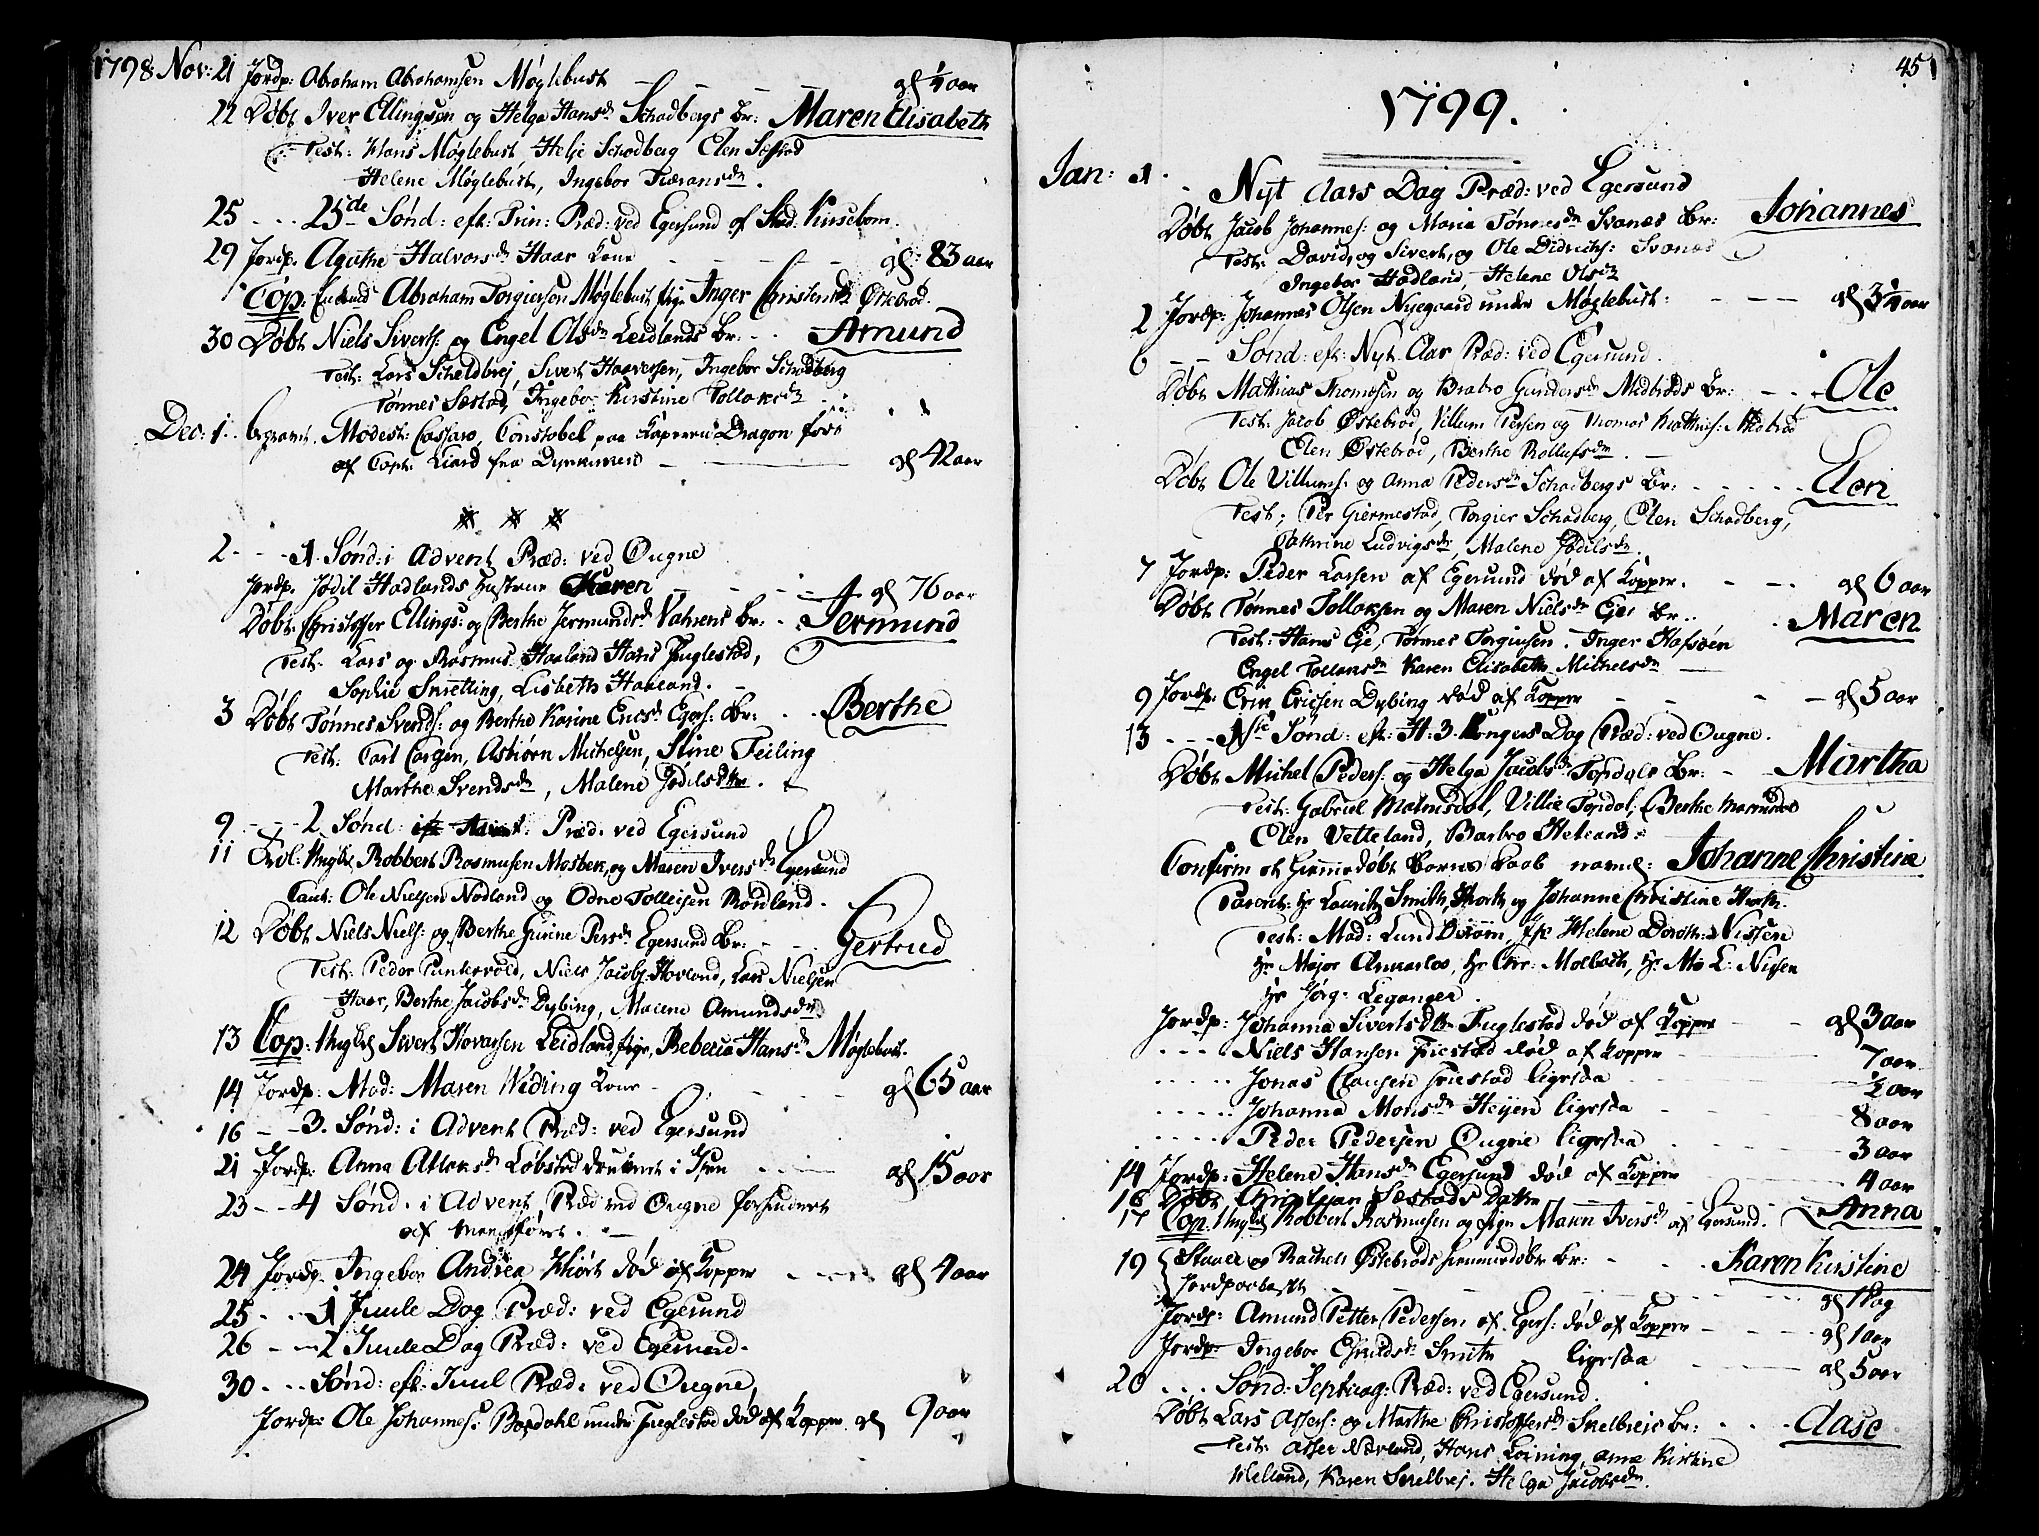 1798 Nov: 21 Jordp: Abraham Abrahamsen Møglebust gl 1/4 aar
22 Døbt Iver Ellingsen og Helga Hansdr Schadbergs Br: Maren Elisabeth
Test: Hans Møglebust, Helje Schadberg Elen
Helene Møglebust, Ingebor
25 - - 25de Sønd: eft: Trin: Præd: ved Egersund af Stud: Kirsebom.
29 Jordp. Agathe Halvorsdr Haar Kone gl: 83 aar
Cop: Enkemd Abraham Torgiersen Møglebust, pige Inger Christensdr Østebrød.
30 Døbt Niels Siverts: og Engel Olsdr Leidlands Br: - Amund
Test: Lars Skeldbrej, Sivert Haaversen, Ingebor Schadberg
Tønnes Sæstad, Ingebor Kirstine Tollaksdr
Dec: 1. begravet Modest: Cassaro, Constabel paa Kaperen Dragon ført
af Capt: Liard fra Dynkirken gl 42 aar
2 - - 1 Sønd: i Advent Præd: ved Ougne
Jordp. Jødil Hadlands hustrue Karen gl 76 aar
Døbt Christoffer Ellings: og Berthe Jermundsd Vahrens Br: - Jermund
Test. Lars og Rasmus Haaland Hans Fuglestad,
Sophie Smetting, Lisbeth Haaland.
3 Døbt Tønnes Svends: og Berthe Karine Ericsdr Egers: Br: Berthe
Test: Carl Carlsen, Asbiørn Michelsen, Stine Feiling
Marthe Svendsdr, Malene Jødilsdtr.
9 - - 2 Sønd: i Advent: Præd: ved Egersund
11 Trol: Ungkl Robbert Rasmusen Mosbek, og Maren Iversdr Egersund
Caut: Ole Nielsen Nodland og Odne Tolleisen Rodland.
12 Døbt Niels Niels: og Berthe Gurine Persdr Egersund Br: - Gertrud
Test: Peder Puntervold, Niels Jacobs: Hovland, Lars Nielsen
Haar, Berthe Jacobsdr Dybing, Malene Amundsdr
13 Cop: Ungkl Sivert Hovarsen Leidland, pige, Rebecca Hansdr Møglebust.
14 Jordp: Mad: Maren Widing Kone gl 65 aar
16 - - 3. Sønd: i Advent Præd: ved Egersund
21 Jordp: Anna Atlaksdr Løbstad druknet i Isen gl 15 aar
23 - - 4 Sønd: i Advent, Præd ved Ougne forhindret
af Menesføret.
24 Jordp. Ingebor Andrea Hiort død af Kopper gl 4 aar
25 - - 1 Juule Dag Præd: ved Egersund
26 - - 2 Juule Dag Præd: ved Egersund.
30 - - Sønd: eft: Juul Præd: ved Ougne,
Jordp: Ole Johannes: Bordahl under Fuglestad død af Kopper gl 9 aar
45
1799.
Jan: 1. Nyt Aars Dag Præd: ved Egersund
Døbt Jacob Johannes: og Maria Tønnesdr Svanes Br: Johannes
Test: David, og Sivert, og Ole Didrichs: Svanes
Ingebor Hadland, Helene Olsdr
2 Jordp: Johannes Olsen Nyegaard under Møglebust: gl 3 1/4 aar
6 - - Sønd: eft: Nyt Aar Præd: ved Egersund.
Døbt Mathias Thomesen og Brabro Gundersdr Midbrøds Br: - - Ole
Test: Jacob Østebrød, Villum Persen og Thomas Matthis: Midbrød
Elen Østebrød, Berthe Rollufsdr.
Døbt Ole Villums: og Anna Pedersdr Schadbergs Br: Elen
Test: Per Giermestad, Torgier Schadberg, Elen Schadberg,
Cathrine Ludvigsdr, Malene Jødilsdr.
7 Jordp: Peder Larsen af Egersund død af Kopper. gl 6 aar
Døbt Tønnes Tollaksen og Maren Nielsdr Eies Br: Maren
Test: Hans Eje, Tønnes Torgiersen. Inger Hafsøen
Engel Tollaksdr Karen Elisabeth Michelsdr
9 Jordp: Eric Ericsen Dybing død af Kopper gl 5 aar
13 - - 1ste Sønd: eft: H: 3 Kongers Dag Præd: ved Ougne.
Døbt Michel Peders: og Helga Jacobsdr Topdals Br: - Martha
Test: Gabriel Malmsdal, Villie Topdal, Berthe
Elen Vetteland, Barbro Helland:
Confirm et hiemmedøbt Barns Daab navnl: Johanne Christine
Parent: hr Lauritz Smith, Hiorth og Johanne Christine Hiorth.
Test: Mad: Lund, Jfr Helene Doroth: Nissen
hr Major, hr Chr: Molbach, hr Mo L: Nissen
hr Jørg: Leganger.
Jordp: Johanna Sivertsdtr Fuglestad død af Kopper gl 3 aar
- - - Niels Hansen Friestad død af Kopper 7 aar
- - - Jonas Clausen Friestad ligesaa 1/2 aar
- - - Johanna Monsdr Heyen ligesaa 8 aar
- - - Peder Pedersen Ougne ligesaa 3 aar
14 Jordp: Helene Hansdr Egersund død af Kopper 4 aar
16 Døbt Christian Sæstads Datter Anna
17 Cop. Ungkl Robbert Rasmusen og pige Maren Iversdr af Egersund.
19 Staale og Rachels Østebrøds hiemmedøbte Br: Karen Kirstine
Jordpaakast gl 1 Dag
Jordp: Amund Petter Pedersen af Egers: død af Kopper gl 1 aar
Jordp: Ingebor Smith ligesaa gl 5 aar
20 - - Sønd: Septuag: Præd: ved Egersund.
Døbt Lars Assers: og Marthe Christoffersdr Skelbreis Br: Aase
Test: Asser Nærland, Hans, Anne Kirstine
Helland, Karen Skelbrej. Helga Jacobsdr.